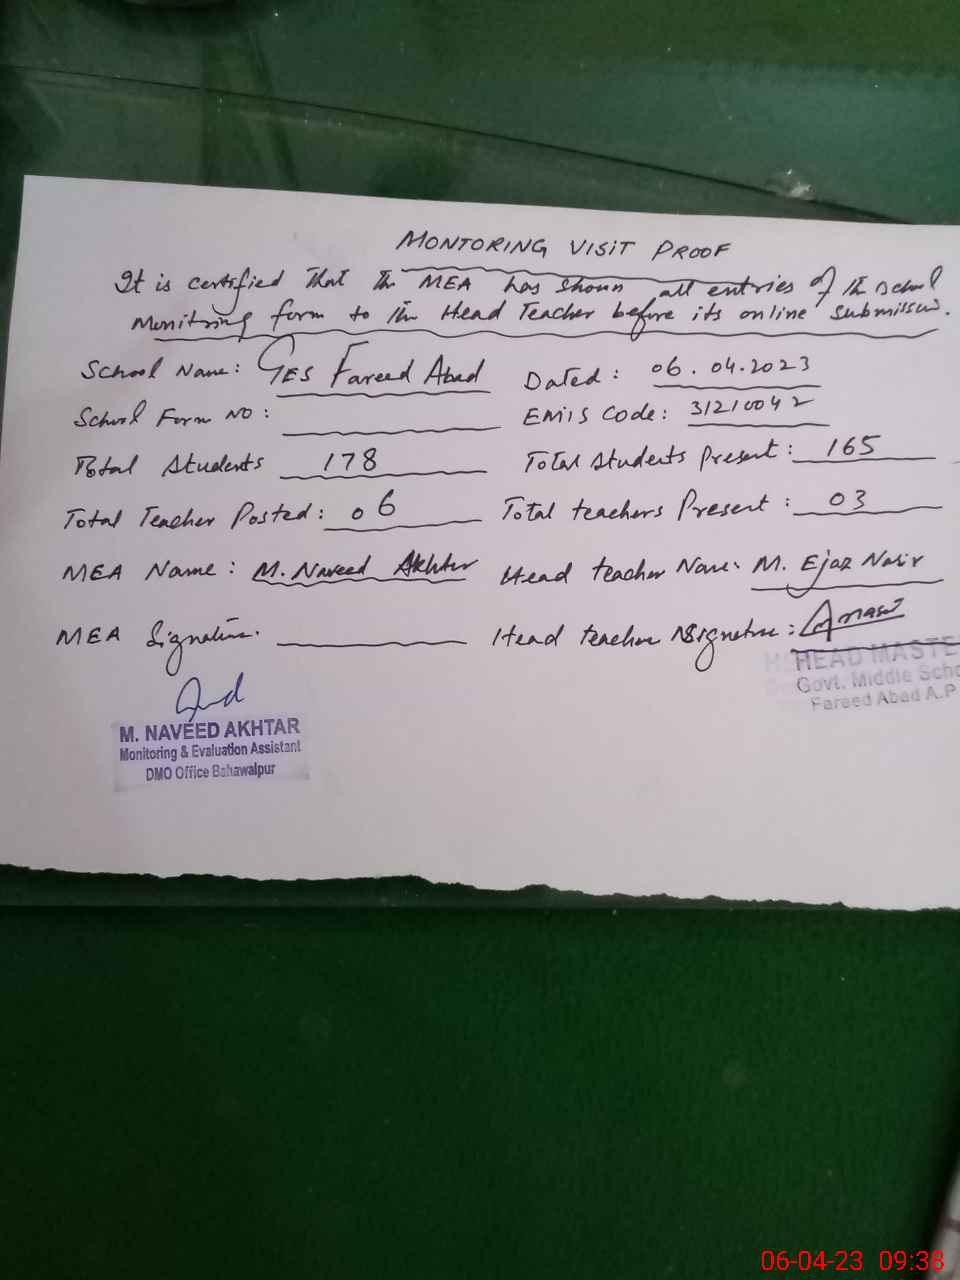 MONTORING VISIT PROOF
It is certified that the MEA has shown all entries of the school
Monitring form to the Head Teacher before its online submission.
School Name: GES Fareed Abad Dated: 06.04.2023
School Form NO: EMIS Code: 31210042
Total Students 178 Total students Present: 165
Total Teacher Posted: 06 Total teachers Present: 03
MEA Name: M. Naveed Akhter Head teacher Name: M. Ejaz Nasir
MEA Signature. Head teacher Signature:
HEAD MASTE
Govt. Middle Scho
Fareed Abad A.P
M. NAVEED AKHTAR
Monitoring & Evaluation Assistant
DMO Office Bahawalpur
06-04-23 09:38